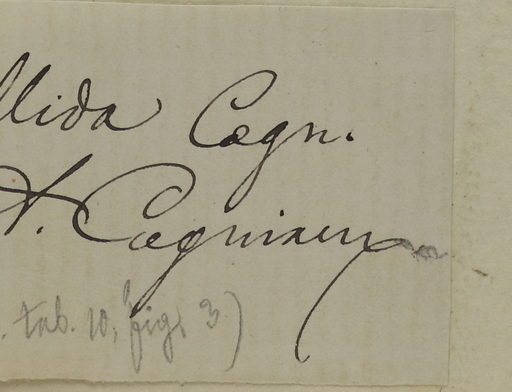 llida Cogn.
A. Cogniaux
. tab. 10, fig. 3)